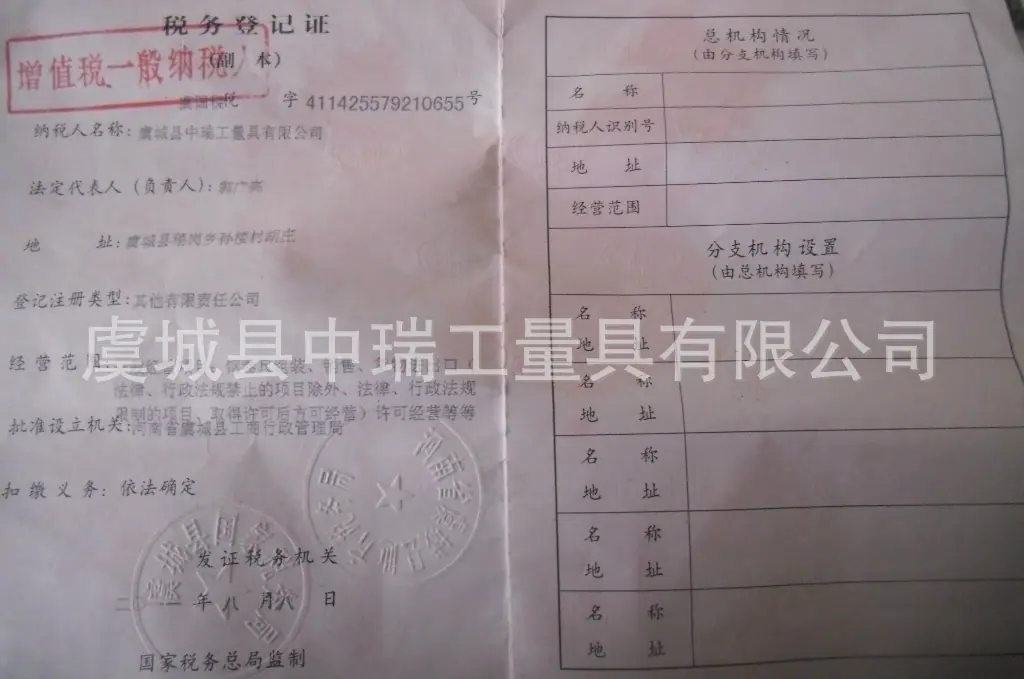 税务登记证
(副 本)
增值税一般纳税人
虞国税 字 411425579210655号
纳税人名称：虞城县中瑞工量具有限公司
法定代表人（负责人）：郭广亮
地 址：虞城县稍岗乡孙楼村胡庄
登记注册类型：其他有限责任公司
经营范围 包装、销售、 出口（
法律、行政法规禁止的项目除外、法律、行政法规
限制的项目、取得许可后方可经营）许可经营等等
批准设立机关：河南省虞城县工商行政管理局
扣缴义务：依法确定
发证税务机关
二〇一一年八月八日
国家税务总局监制
虞城县中瑞工量具有限公司
总机构情况
(由分支机构填写)
名 称
纳税人识别号
地 址
经营范围
分支机构设置
(由总机构填写)
名 称
地 址
名 称
地 址
名 称
地 址
名 称
地 址
名 称
地 址